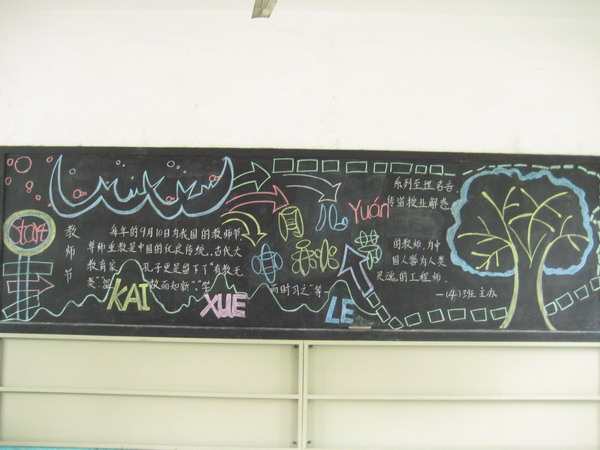 start
教师节
每年的9月10日为我国的教师节,
尊师重教是中国的优良传统,古代大
教育家 孔子更是留下了"有教无
类"温 故而知新"."学 而时习之"等
KAI
XUE
LE
Yuán
系列至理名言
传道授业解惑
的教师,为中
国人路为人类
灵魂的工程师.
一(4)班 主办